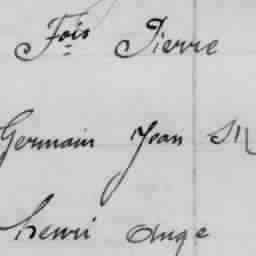 Fois Pierre
Germain Jean M
henri ange